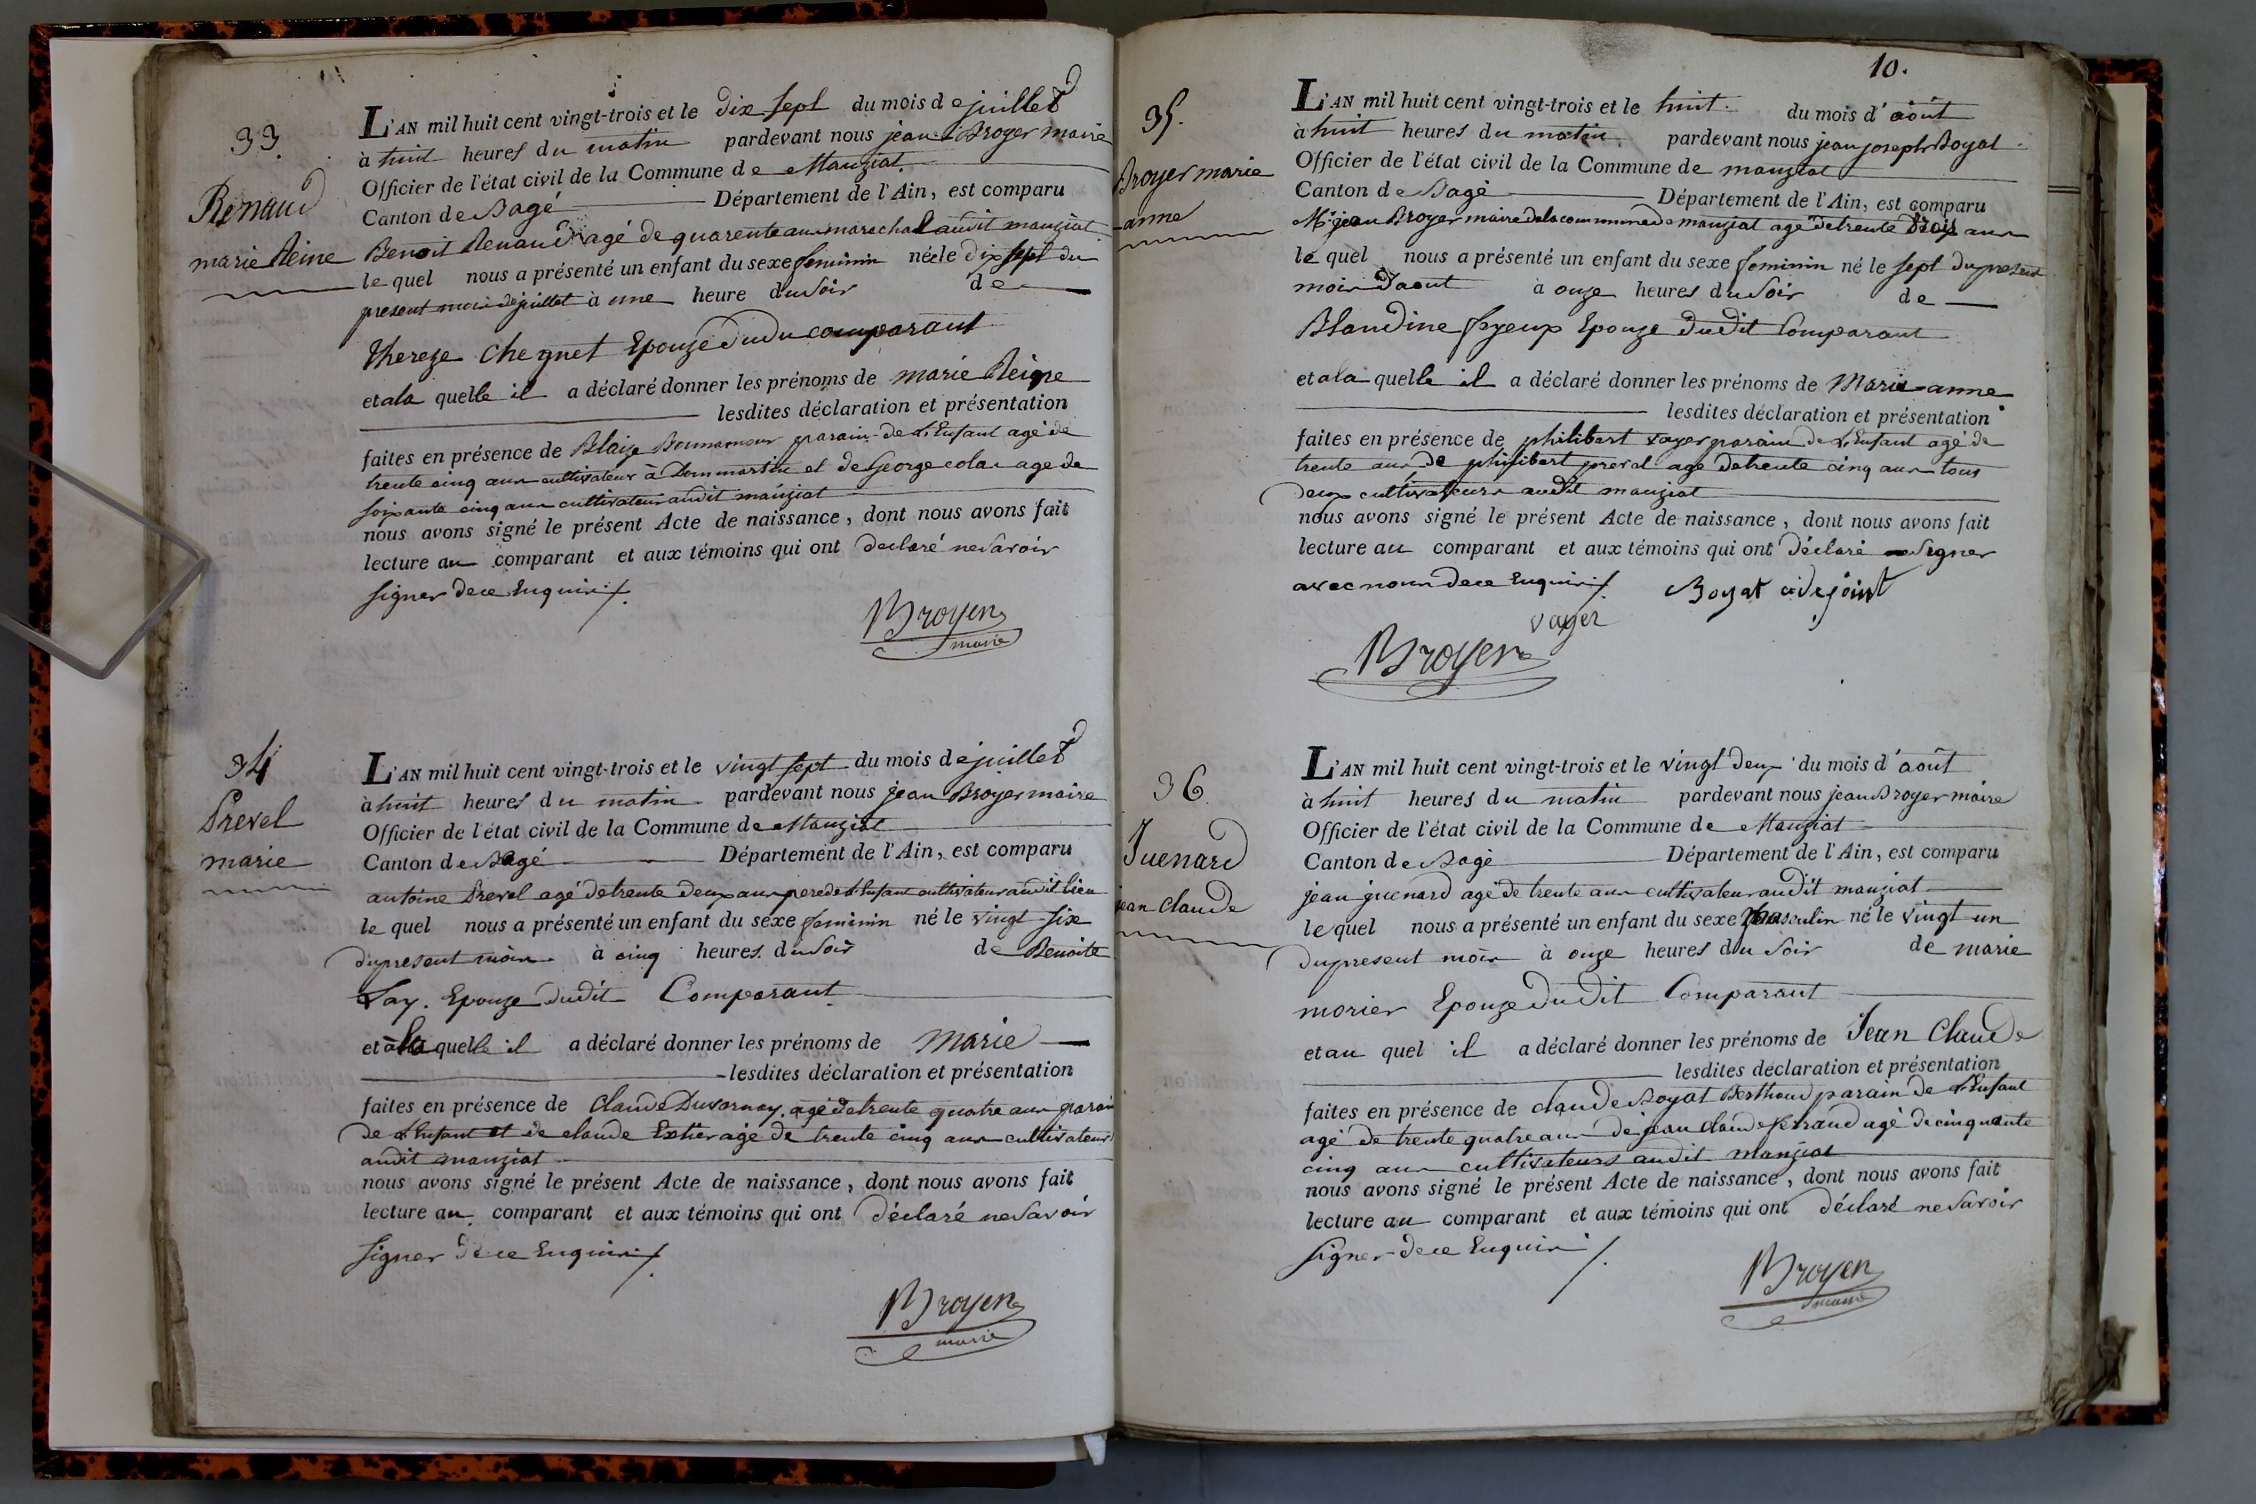 33.
Renaud
marie Reine
L'AN mil huit cent vingt-trois et le dix sept du mois de juillet
à huit heures du matin pardevant nous jean Broyer maire
Officier de l'état civil de la Commune de Manziat
Canton de Bagé Département de l'Ain, est comparu
Benoit Renaud agé de quarente ans marechal audit manziat
le quel nous a présenté un enfant du sexe feminin née le dix sept du
present mois de juillet à une heure du soir de
Thereze Chegnet Epouze dudu comparant
et a la quelle il a déclaré donner les prénoms de marie Reigne
lesdites déclaration et présentation
faites en présence de Blaize Bonnamour parain de L'Enfant agé de
trente cinq ans cultivateur à Dommartin et de George colas age de
soixante cinq ans cultivateur audit manziat
nous avons signé le présent Acte de naissance, dont nous avons fait
lecture au comparant et aux témoins qui ont declaré ne savoir
signer de ce Enquis ./.
Broyer
maire
34
Prevel
marie
L'AN mil huit cent vingt-trois et le vingt sept du mois de juillet
à huit heures du matin pardevant nous jean Broyer maire
Officier de l'état civil de la Commune de Manziat
Canton de Bagé Département de l'Ain, est comparu
antoine Prevel agé de trente deux ans pere de L'Enfant cultivateur audit lieu
le quel nous a présenté un enfant du sexe feminin né le vingt six
du present mois à cinq heures du soir de Benoite
Lay Epouze dudit Comparant
et a la quelle il a déclaré donner les prénoms de marie
lesdites déclaration et présentation
faites en présence de claude Duvernay agé de trente quatre ans parain
de L'Enfant et de claude Extier agé de trente cinq ans cultivateurs
audit manziat
nous avons signé le présent Acte de naissance, dont nous avons fait
lecture au comparant et aux témoins qui ont déclaré ne savoir
signer de ce Enquis ./.
Broyer
maire
10.
35.
Broyer marie
anne
L'AN mil huit cent vingt-trois et le huit du mois d'août
à huit heures du matin pardevant nous jean joseph Boyat
Officier de l'état civil de la Commune de manziat
Canton de Bagé Département de l'Ain, est comparu
Mr jean Broyer maire de la commune de manziat agé de trente trois ans
le quel nous a présenté un enfant du sexe feminin né le sept du present
mois d'aout à onze heures du soir de
Blandine Epouze dudit Comparant
et a la quelle il a déclaré donner les prénoms de Marie anne
lesdites déclaration et présentation
faites en présence de philibert vayer parain de L'Enfant agé de
trente ans de philibert prevel agé de trente cinq ans tous
deux cultivateurs audit manziat
nous avons signé le présent Acte de naissance, dont nous avons fait
lecture au comparant et aux témoins qui ont déclaré signer
avec nous de ce Enquis ./. Boyat adejoint
vayer
Broyer
36
Juenard
jean claude
L'AN mil huit cent vingt-trois et le vingt deux du mois d'août
à huit heures du matin pardevant nous jean Broyer maire
Officier de l'état civil de la Commune de Manziat
Canton de Bagé Département de l'Ain, est comparu
jean juenard agé de trente ans cultivateur audit manziat
le quel nous a présenté un enfant du sexe masculin né le vingt un
du present mois à onze heures du soir de marie
morier Epouze dudit Comparant
et au quel il a déclaré donner les prénoms de Jean Claude
lesdites déclaration et présentation
faites en présence de claude Boyat Berthoud parain de L'Enfant
agé de trente quatre ans de jean claude ferraud agé de cinquante
cinq ans cultivateurs audit manziat
nous avons signé le présent Acte de naissance, dont nous avons fait
lecture au comparant et aux témoins qui ont déclaré ne savoir
signer de ce Enquis ./.
Broyer
maire